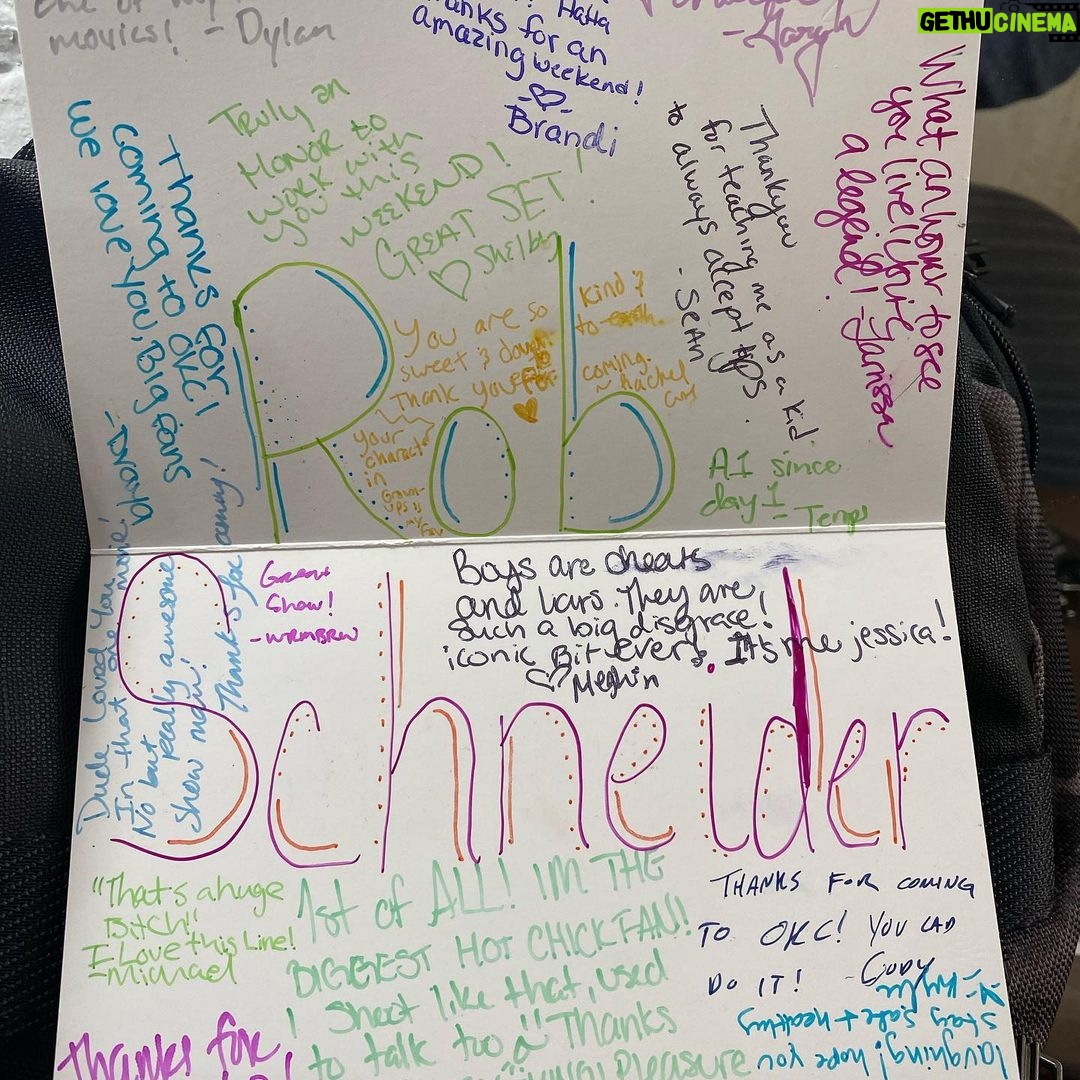 GETHUCINEMA
movies! - Dylan
thanks for an
amazing weekend!
Brandi
What an honor to see
you live! You're
a legend! - Jarrissa
Truly an
HONOR to
work with
you this
WEEKEND!
GREAT SET!
Shelby
Thankyou
for teaching me as a kid
to always accept tips.
- SEAN
THANKS FOR
COMING TO OKC!
WE love you, Big fans
You are so
sweet & down
to
Thank you for
kind &
to earth
coming.
~ Rachel
your
character
in
Grown-
ups is
my
fav
Rob
A1 since
day 1
- Temps
Dude Loved You
In that one movie!
No but really awesome
show man!
Thanks for
Great
Show!
- WRMBRW
Boys are cheats
and liars. They are
such a big disgrace!
iconic Bit ever. It's me jessica!
Meghin
Schneider
"That's a huge
Bitch"
I Love this Line!
- Michael
1st of ALL! IM THE
BIGGEST HOT CHICK FAN!
I Sheet like that, used
to talk too " Thanks
pleasure
THANKS FOR COMING
TO OKC! YOU CAD
DO IT! - Cody
Thanks for
laughing! hope you
stay safe + healthy
- Kylie